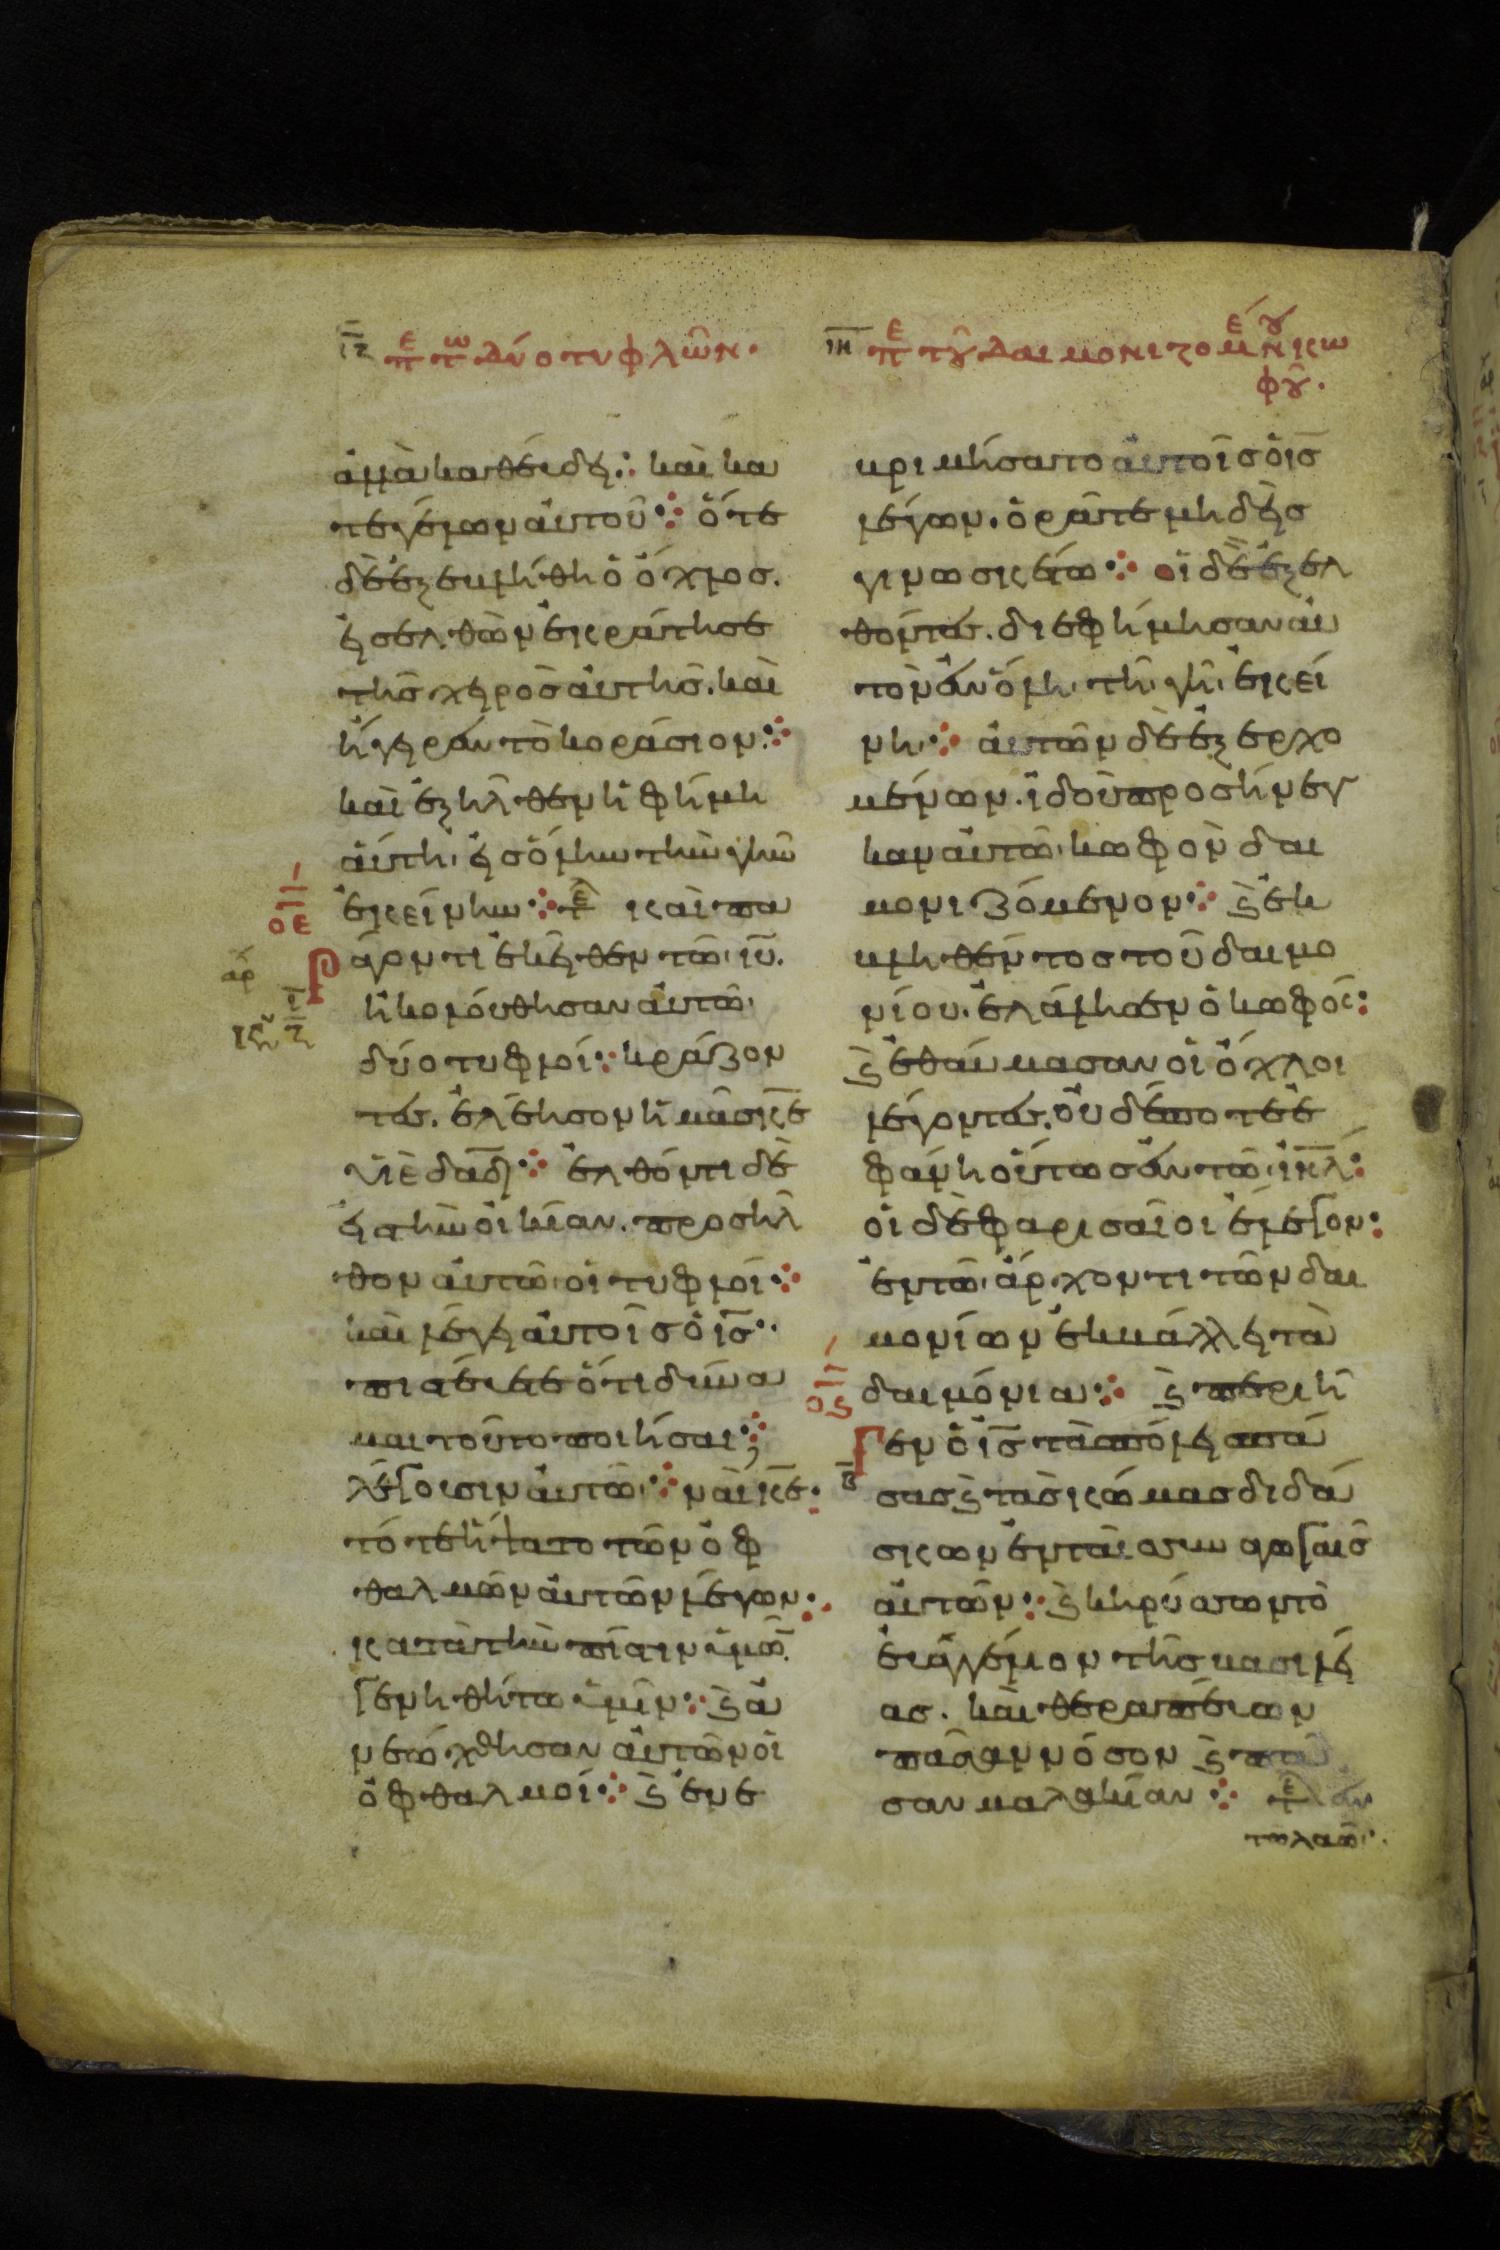 ιζ πε τω δύο τυφλῶν·
ἀλλὰ καθεύδει· καὶ κα
τεγέλων αὐτοῦ· ὅτε
δὲ ἐξεβλήθη ὁ ὄχλος.
εἰσελθὼν ἐκράτησε
τῆς χειρὸς αὐτῆς. καὶ
ἠγέρθη τὸ κοράσιον·
καὶ ἐξῆλθεν ἡ φήμη
αὕτη εἰς ὅλην τὴν γῆν
ἐκείνην· τε καὶ πα
οε
ράγοντι ἐκεῖθεν τῷ ιυ.
αρχ
ἠκολούθησαν αὐτῷ
ιζ
δύο τυφλοί· κράζον
τες. ἐλέησον ἡμᾶς κε
υἱὲ δαδ· ἐλθόντι δὲ
εἰς τὴν οἰκίαν. προσῆλ
θον αὐτῷ οἱ τυφλοί·
καὶ λέγει αὐτοῖς ὁ ις·
πιστεύετε ὅτι δύνα
μαι τοῦτο ποιῆσαι;
λέγουσιν αὐτῷ· ναὶ κε·
τότε ἥψατο τῶν ὀφ
θαλμῶν αὐτῶν λέγων·
κατὰ τὴν πίστιν ὑμῶν.
γενηθήτω ὑμῖν· ϗ ἀ
νεώχθησαν αὐτῶν οἱ
ὀφθαλμοί· ϗ ἐνε
ιη πε τοῦ δαιμονιζομένου κω
φοῦ·
βριμήσατο αὐτοῖς ὁ ις
λέγων. ὁρᾶτε μηδεὶς
γινωσκέτω· οἱ δὲ ἐξελ
θόντες. διεφήμησαν αὐ
τὸν ἐν ὅλῃ τῇ γῇ ἐκεί
νῃ· αὐτῶν δὲ ἐξερχο
μένων. ἰδοὺ προσήνεγ
καν αὐτῷ κωφὸν δαι
μονιζόμενον· ϗ ἐκ
βληθέντος τοῦ δαιμο
νίου. ἐλάλησεν ὁ κωφός:
ϗ ἐθαύμασαν οἱ ὄχλοι
λέγοντες. οὐδέποτε ἐ
φάνη οὕτως ἐν τῷ ιηλ:
οἱ δὲ φαρισαῖοι ἔλεγον:
ἐν τῷ ἄρχοντι τῶν δαι
μονίων ἐκβάλλει τὰ
δαιμόνια· ϗ περιῆ
ος
γεν ὁ ις τὰς πόλεις πά
β
σας ϗ τὰς κώμας διδά
σκων ἐν ταῖς συναγωγαῖς
αὐτῶν· ϗ κηρύσσων τὸ
εὐαγγέλιον τῆς βασιλεί
ας. καὶ θεραπεύων
πᾶσαν νόσον ϗ πᾶ
σαν μαλακίαν· τε ἐν
τῷ λαῷ·